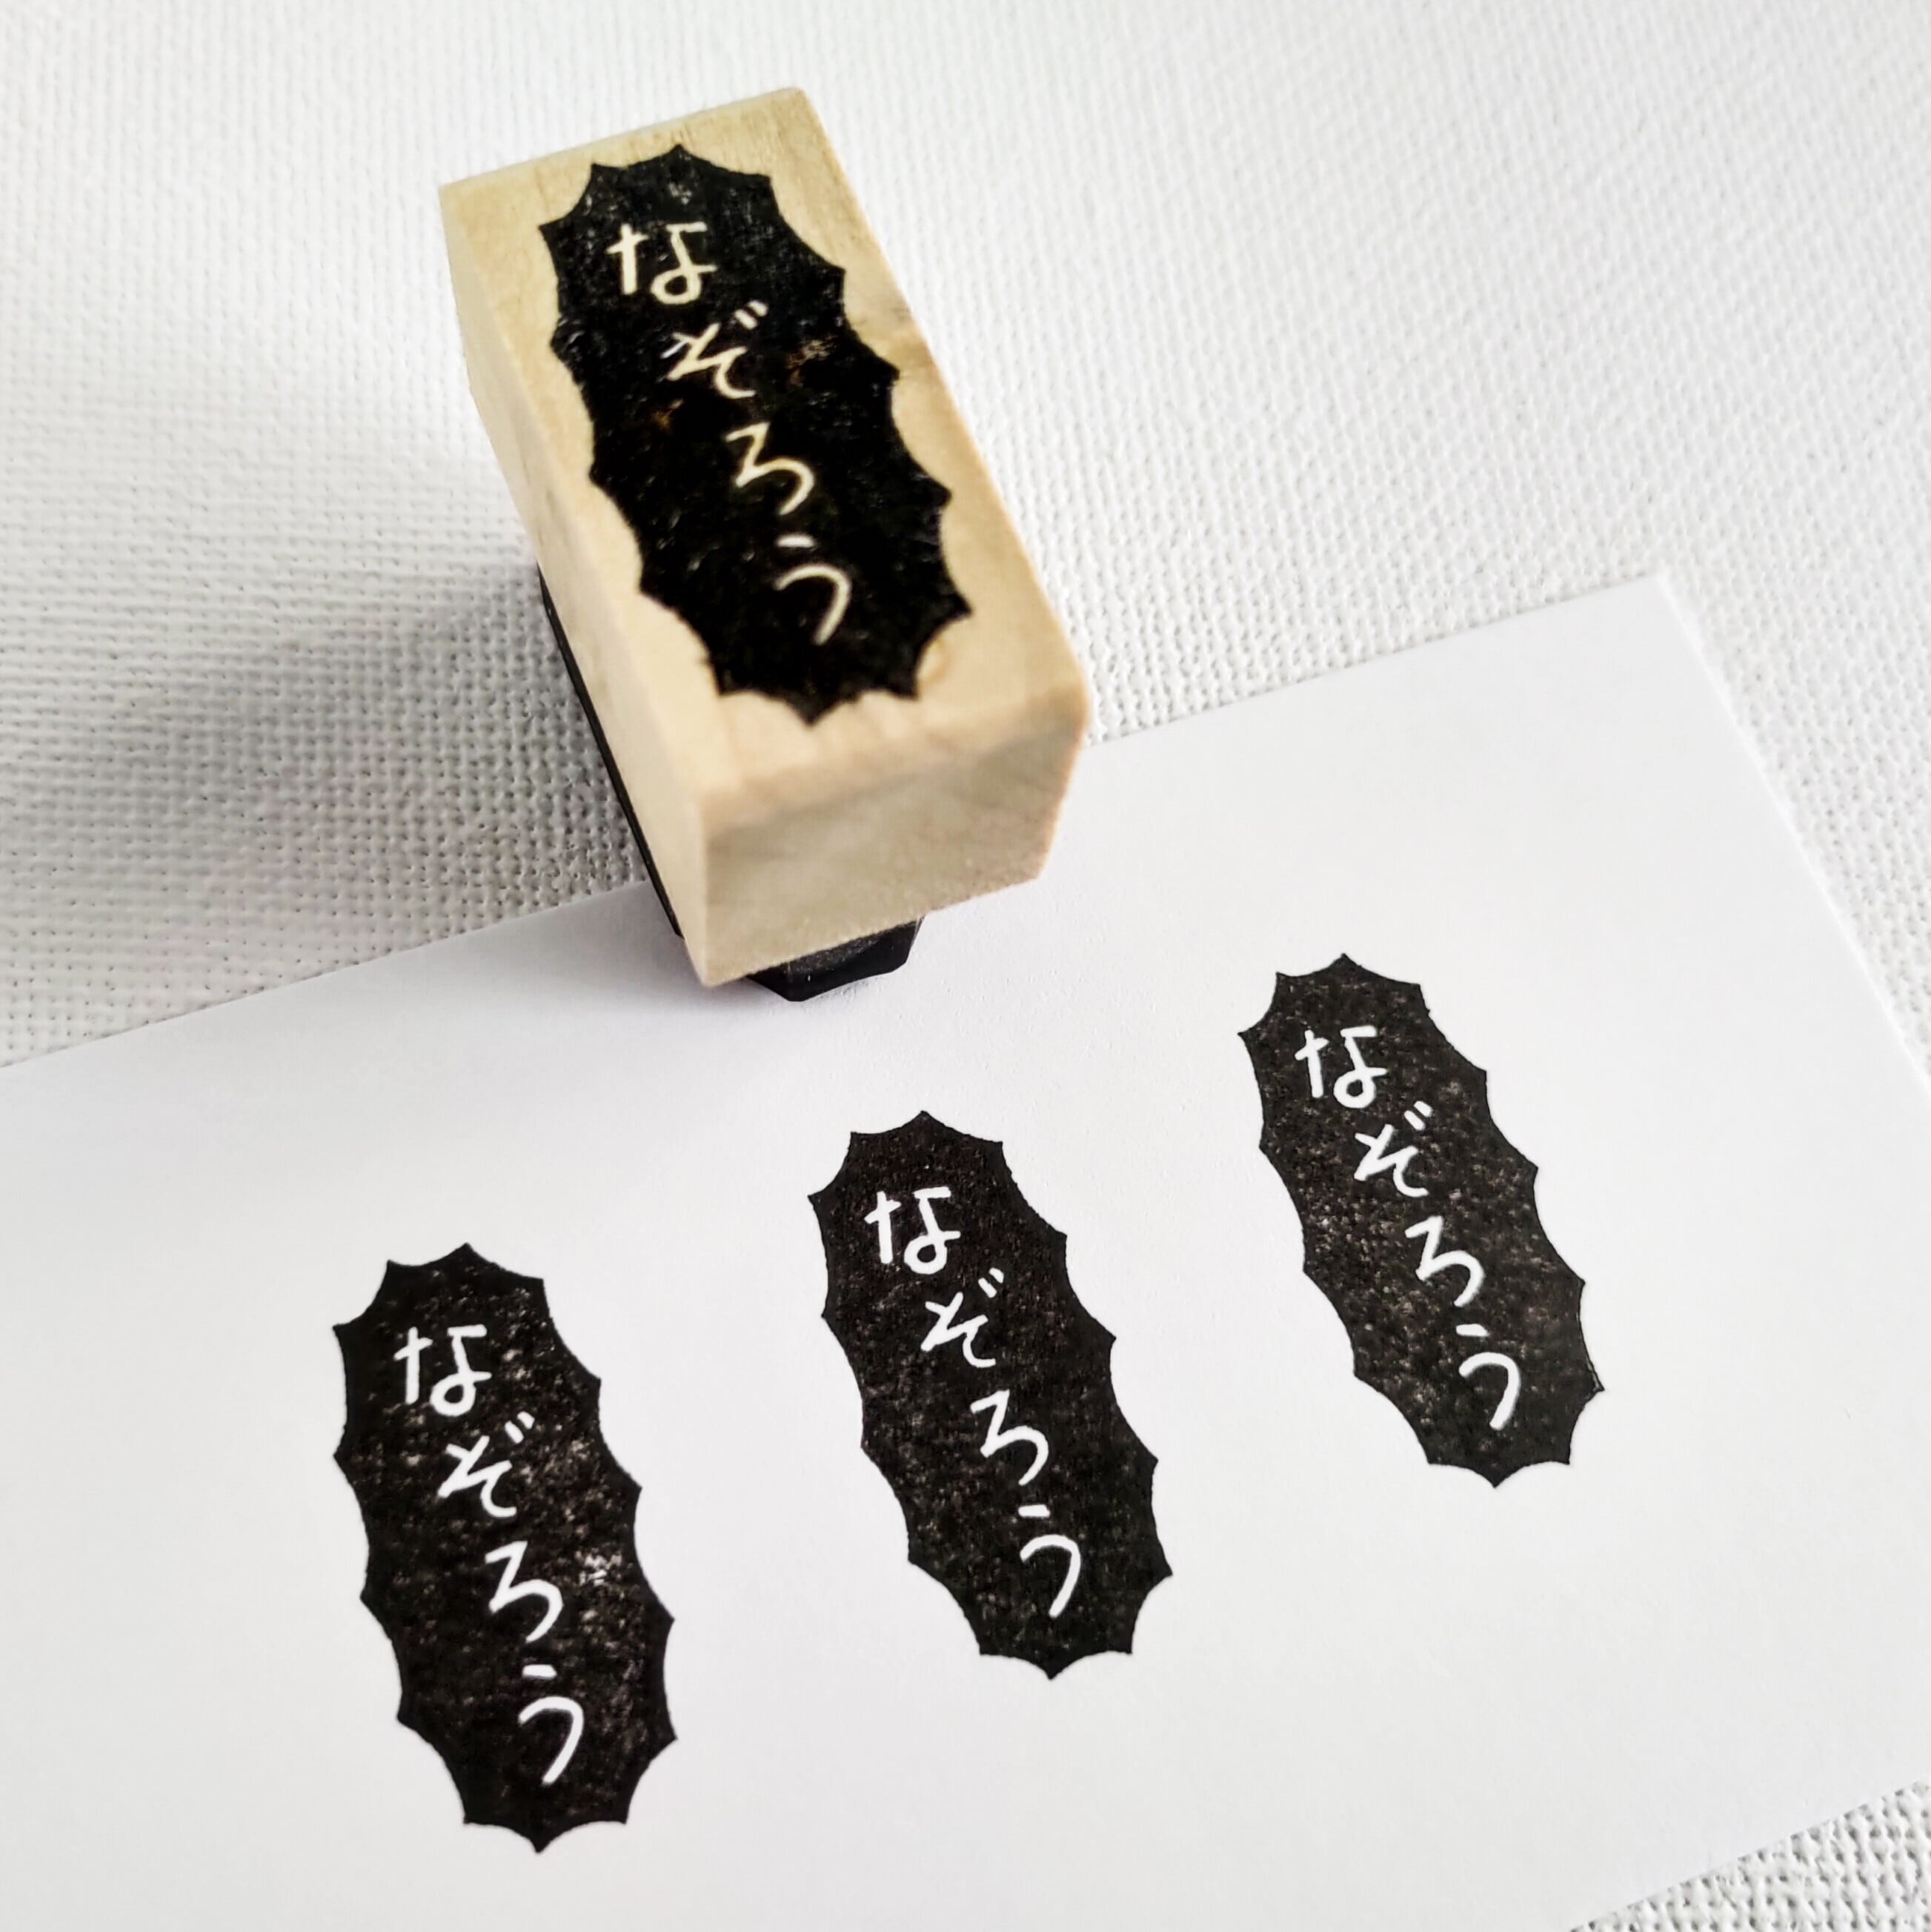 なぞろう
なぞろう
なぞろう
なぞろう